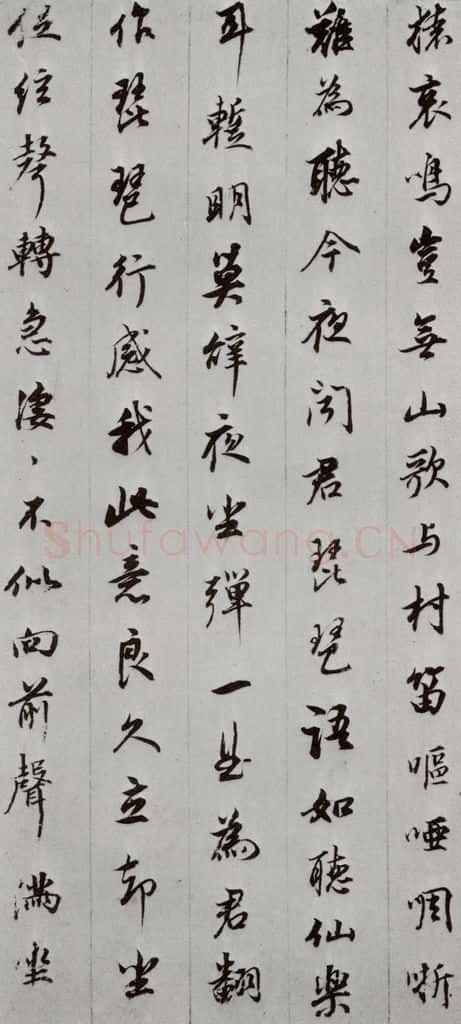 猿哀鳴豈無山歌与村笛嘔啞啁哳
難為聽今夜聞君琵琶語如聽仙樂
耳暫明莫辭夜坐彈一曲為君翻
作琵琶行感我此意良久立却坐
促絃聲轉急凄〻不似向前聲滿坐
Shufawang.CN